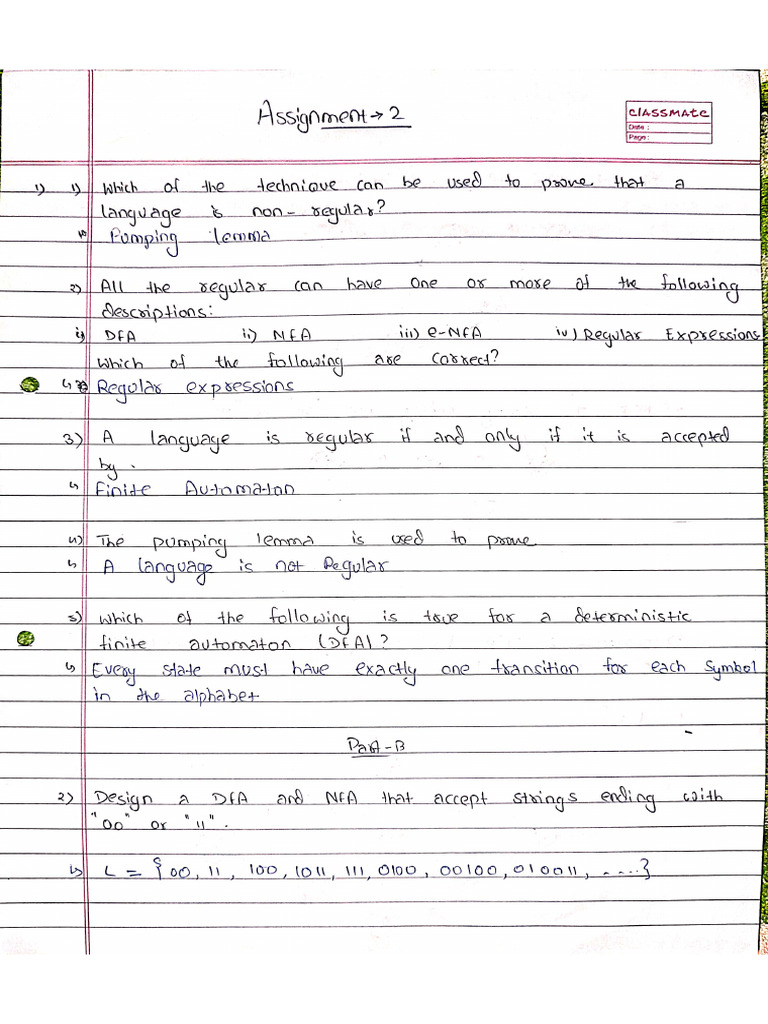 Assignment → 2
classmate
Date :
Page :
1) 1) Which of the technique can be used to prove that a
language is non-regular?
↳ Pumping lemma
2) All the regular can have one or more of the following
descriptions:
i) DFA ii) NFA iii) e-NFA iv) Regular Expressions
Which of the following are correct?
↳ Regular expressions
3) A language is regular if and only if it is accepted
by.
↳ Finite Automaton
4) The pumping lemma is used to prove
↳ A language is not Regular
5) Which of the following is true for a deterministic
finite automaton (DFA)?
↳ Every state must have exactly one transition for each symbol
in the alphabet
Part-B
2) Design a DFA and NFA that accept strings ending with
"00" or "11".
↳ L = {00, 11, 100, 1011, 111, 0100, 00100, 010011, .....}